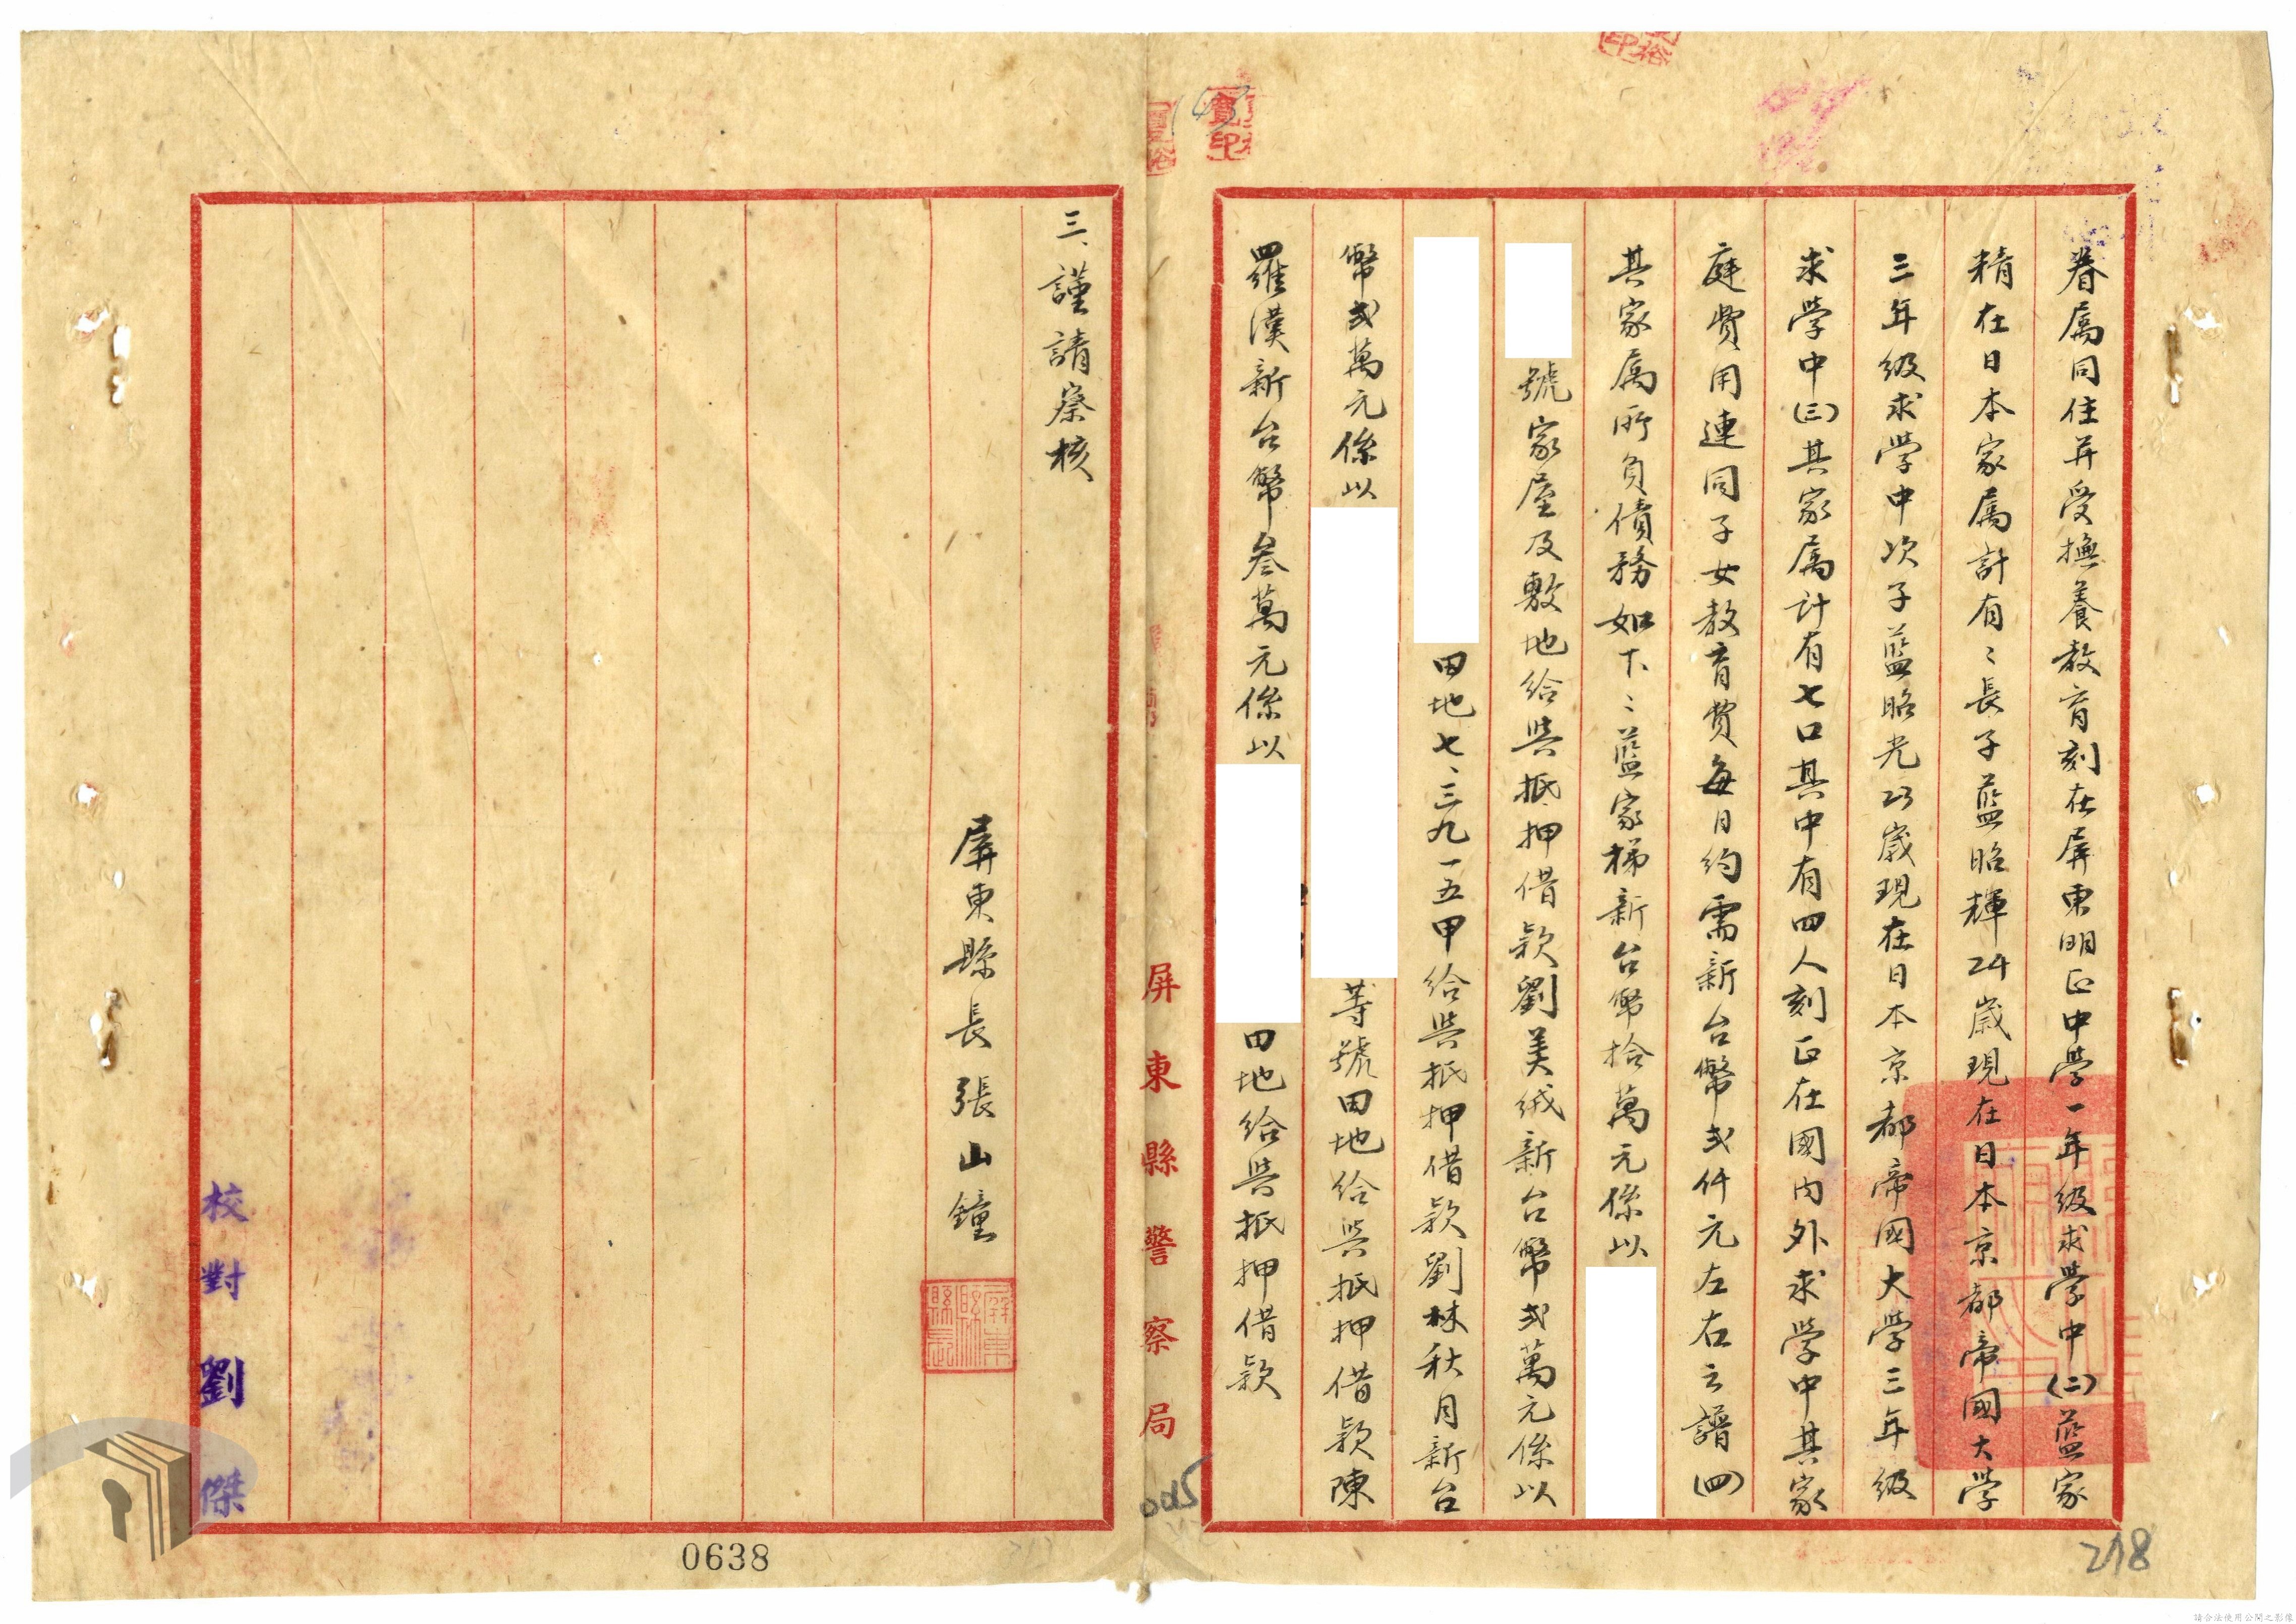 眷属同住并受撫養教育刻在屏東明正中學一年級求學中(二)藍家
精在日本家属計有〻長子藍昭輝24歲現在日本京都帝國大學
三年級求學中次子藍昭光23歲現在日本京都帝國大學三年級
求學中(三)其家属計有七口其中有四人刻正在國内外求學中其家
庭費用連同子女教育費每月約需新台幣弍仟元左右云譜(四)
其家属所負債務如下〻藍家梯新台幣拾萬元係以
號家屋及敷地給與抵押借款劉美绒新台幣弍萬元係以
田地七、三九一五甲給與抵押借款劉林秋月新台
幣弍萬元係以 等號田地給與抵押借款陳
羅漢新台幣叁萬元係以 田地給與抵押借款
三、謹請察核
屏東縣長張山鐘
屏東縣警察局
校對劉傑
0638
005
218
145
請合法使用公開之影像